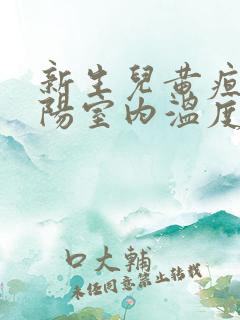 新生兒黄疸
陽室内溫度
口大輔
未经同意禁止转载